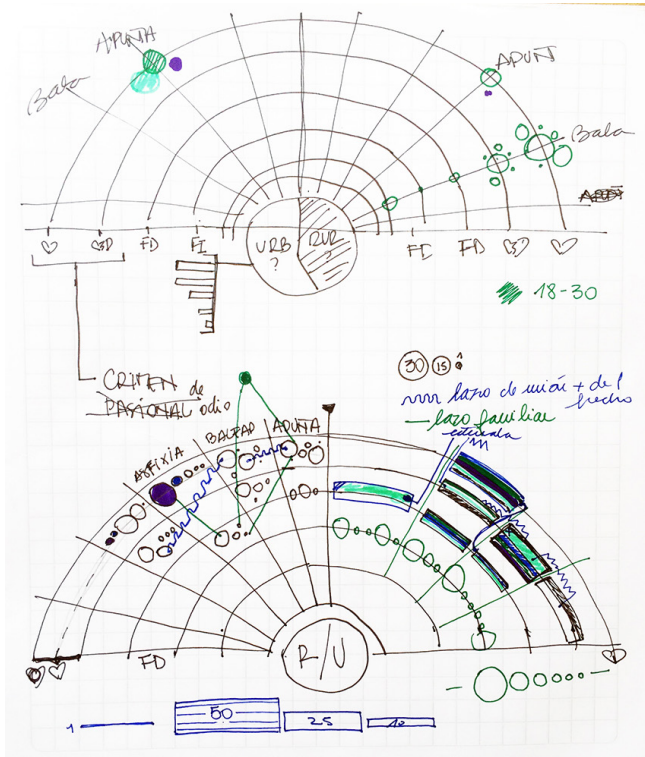 APUNTA
APUÑ
Bala
Bala
♡ ♡D FD FI
URB
?
RUR
?
FI FD ♡D ♡
18-30
CRIMEN de
PASIONAL odio
30 15
lazo de unión + de 1
hecho
lazo familiar
ASFIXIA
BALEAD
APUÑA
R/U
FD
1
50
25
10